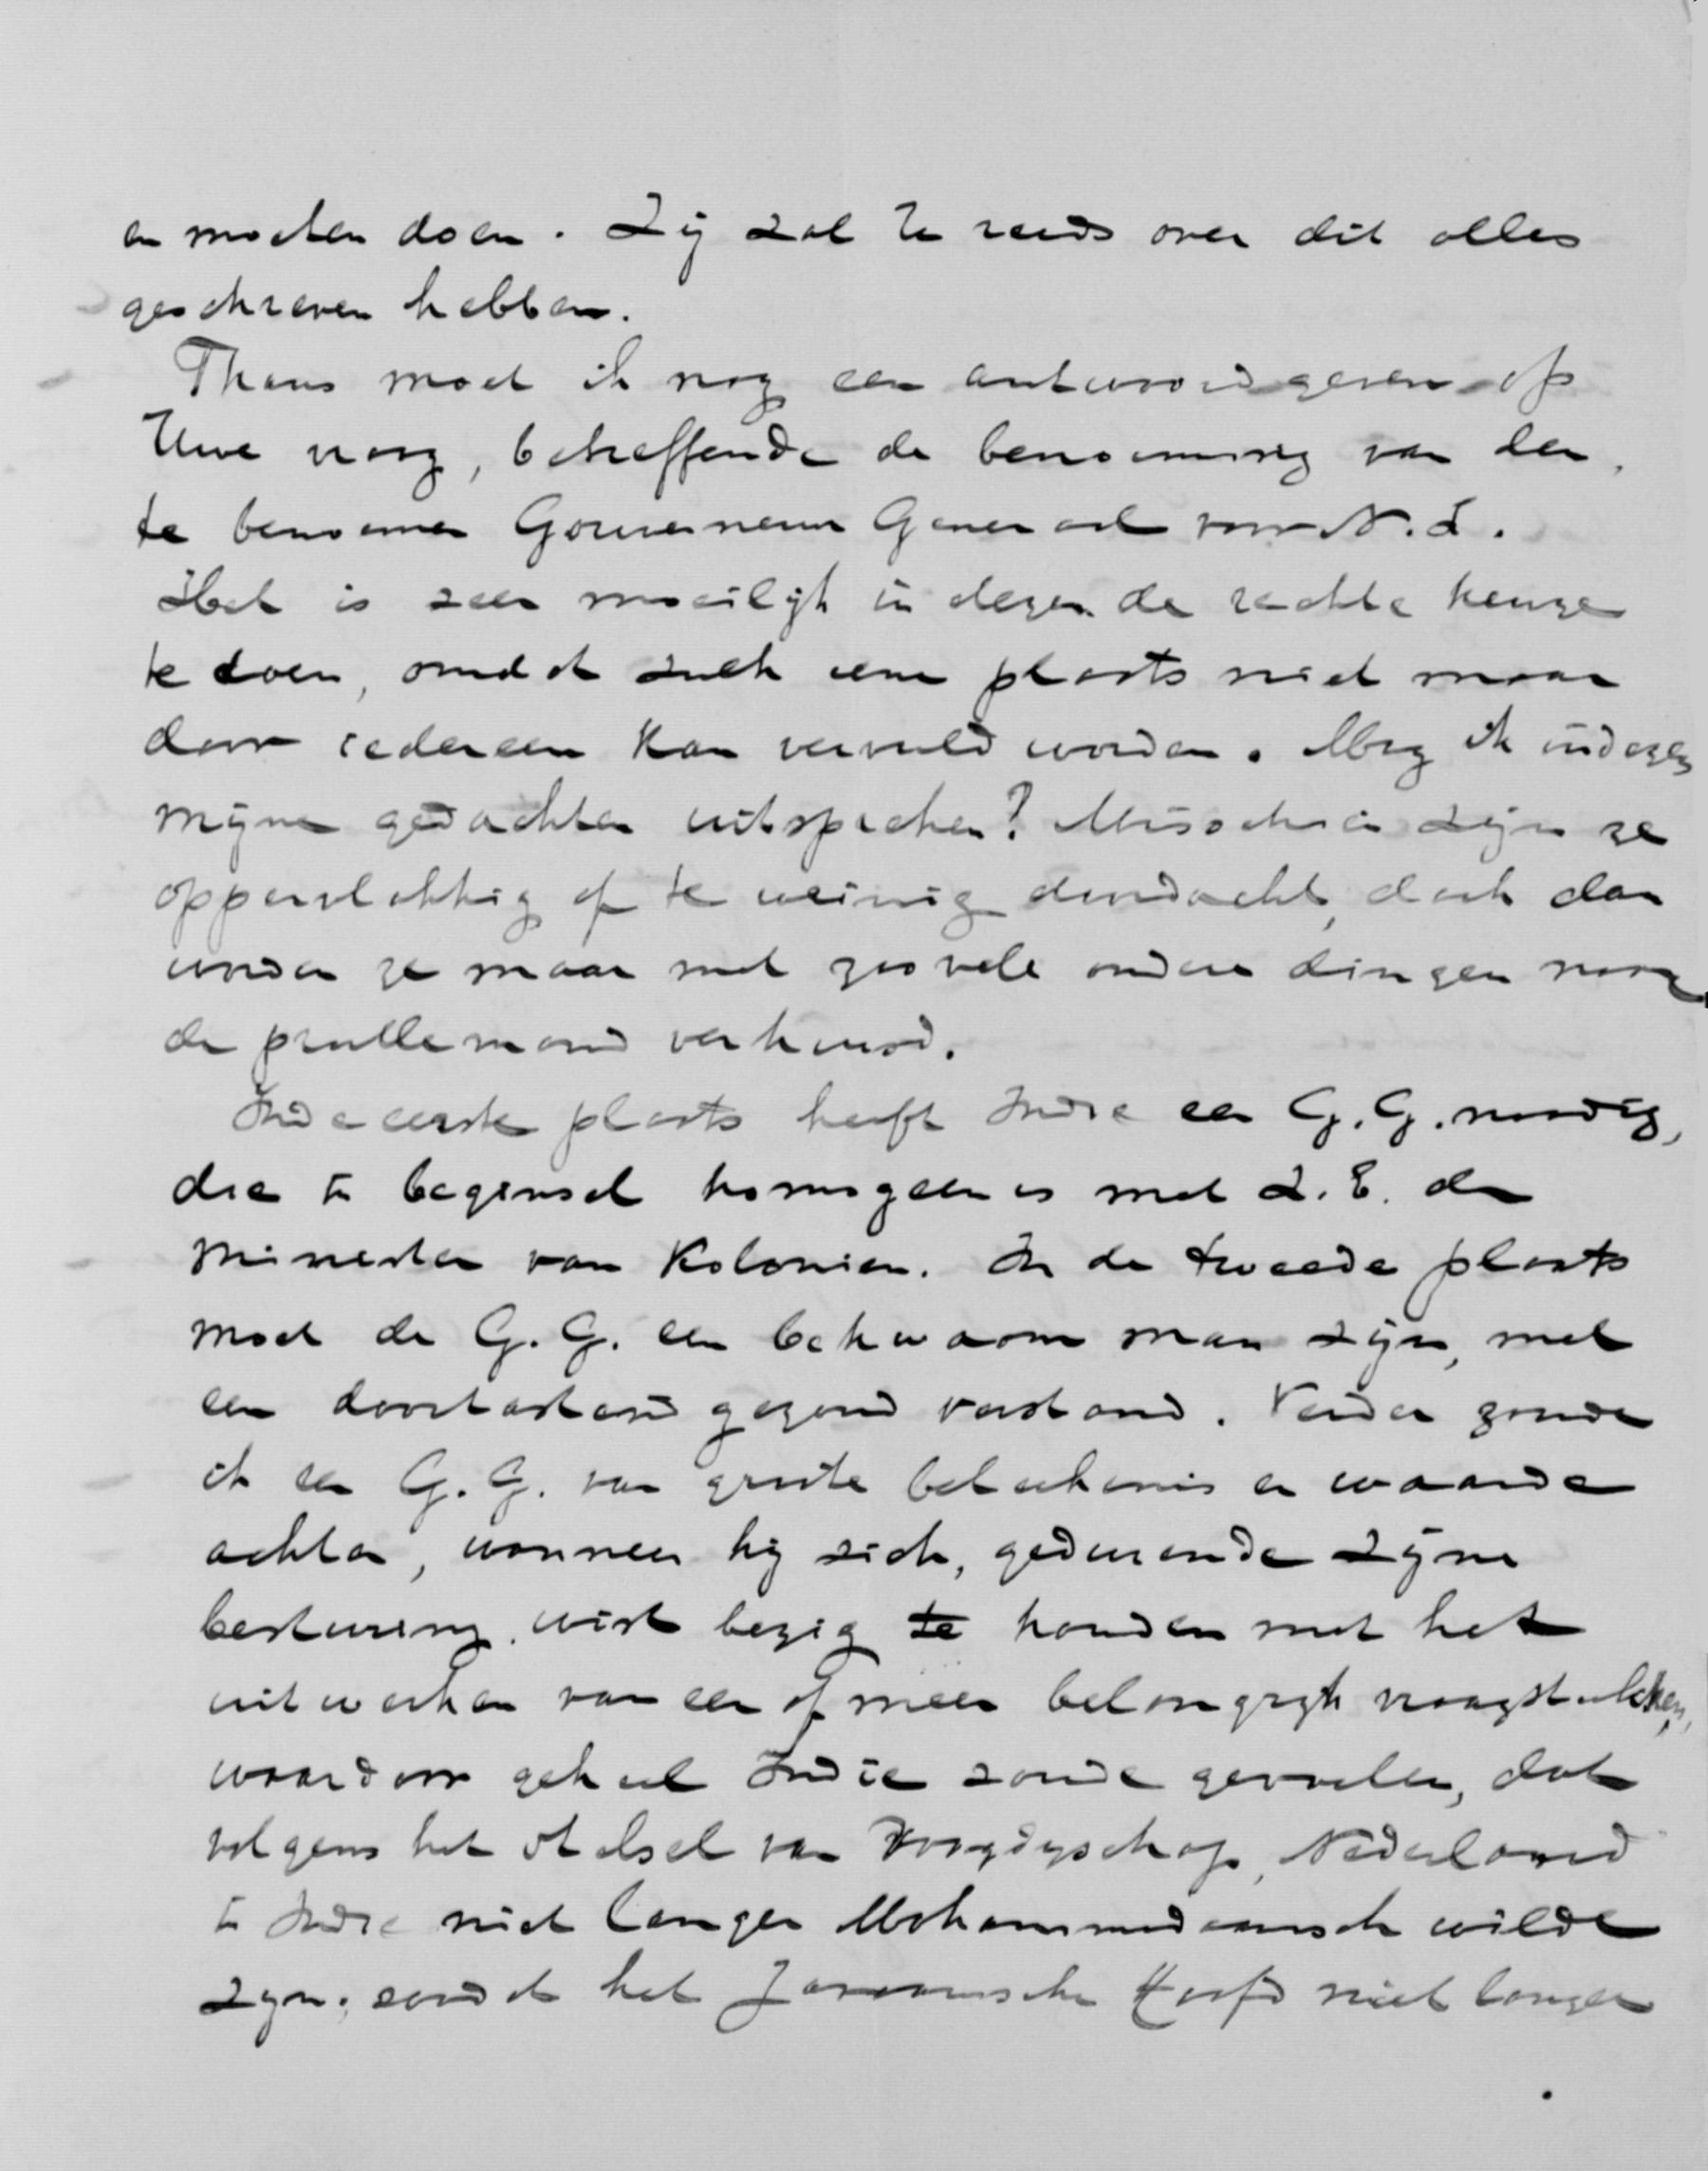 en moeten doen. Zij zal U reeds over dit alles
geschreven hebben.
Thans moet ik nog een antwoord geven op
Uwe vraag, betreffende de benoeming van den
te benoemen Gouverneur Generaal voor N.I.
Het is zeer moeilijk in dezen de rechte keuze
te doen, omdat zulk eene plaats niet maar
door iedereen kan vervuld worden. Mag ik indezen
mijne gedachten uitspreken? Misschien zijn ze
oppervlakkig of te weinig doordacht, doch dan
worden ze maar met zoovele andere dingen naar
de prullemand verhuisd.
In de eerste plaats heeft Indie een G.G. noodig,
die in beginsel homogeen is met Z.E. den
Minister van Kolonien. In de tweede plaats
moet de G.G. een bekwaam man zijn, met
een doortastend gezond verstand. Verder zoude
ik een G.G. van groote beteekenis en waarde
achten, wanneer hij zich, gedurende zijne
besturing wist bezig te houden met het
uitwerken van een of meer belangrijk vraagstukken,
waardoor geheel Indië zoude gevoelen, dat
volgens het stelsel van Voogdijschap, Nederland
in Indie niet langer Mohammedaansch wilde
zijn; zoodat het Javaansche Hoofd niet langer